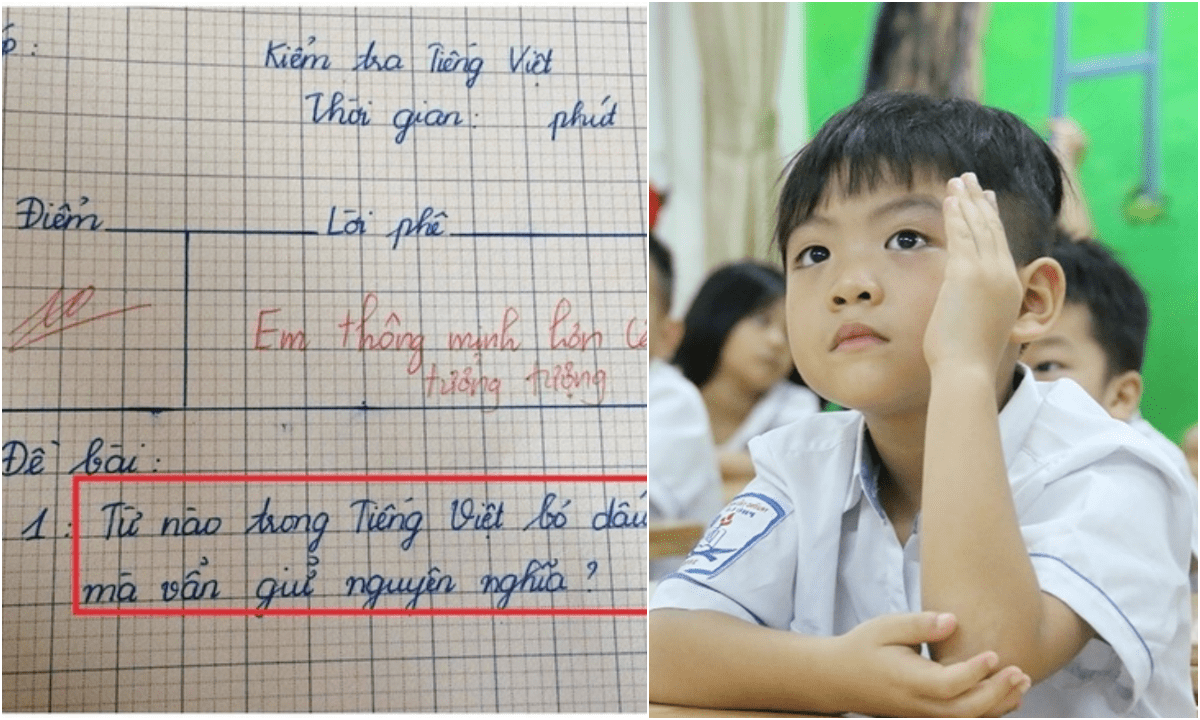 Kiểm tra Tiếng Việt
Thời gian: phút
Điểm Lời phê
10
Em thông minh hơn
tưởng tượng
Đề bài:
1: Từ nào trong Tiếng Việt bỏ dấu
mà vẫn giữ nguyên nghĩa?